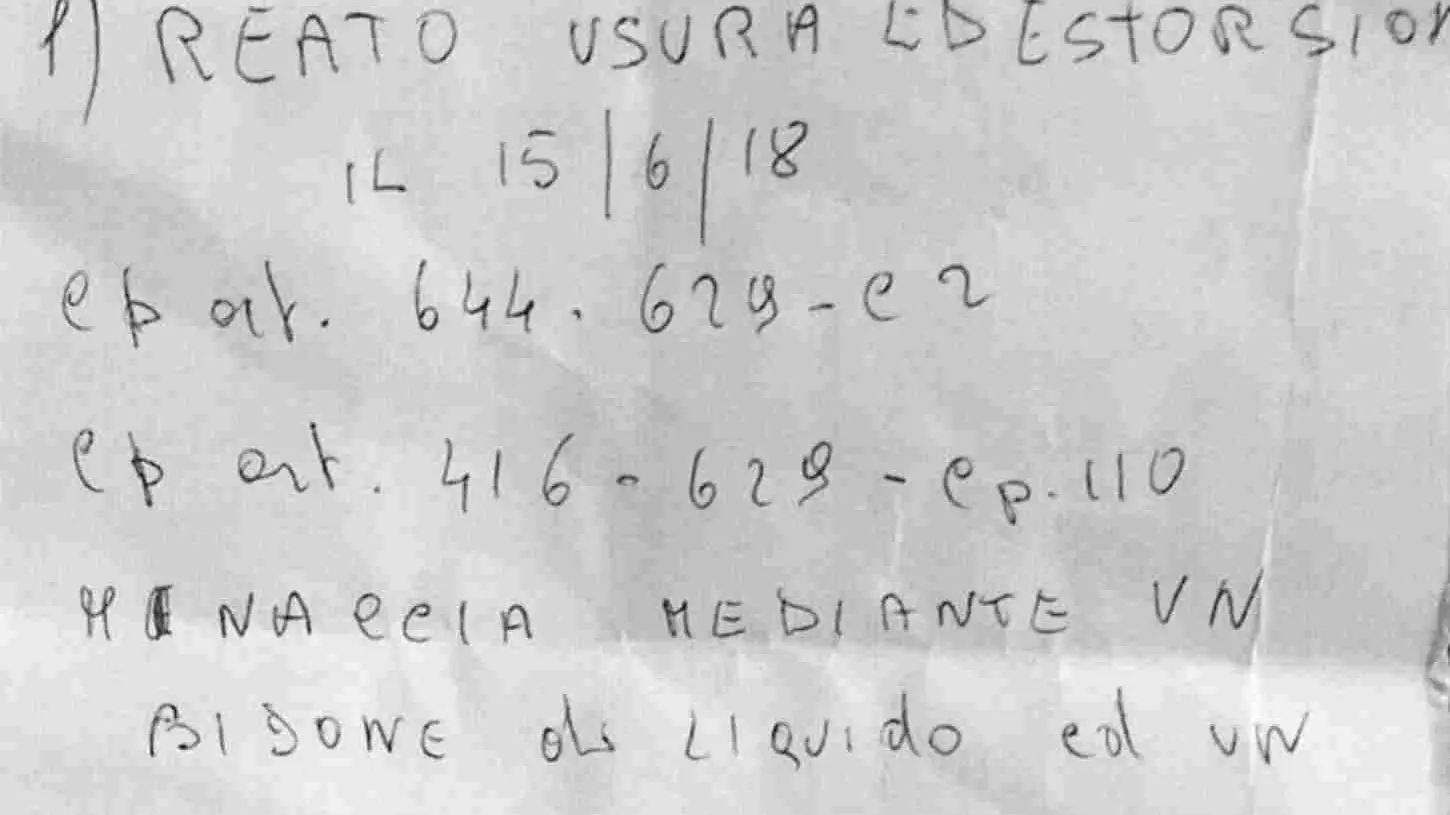 1) REATO USURA ED ESTORSION
IL 15/6/18
cp art. 644. 629 - c 2
cp art. 416 - 629 - cp. 110
MINACCIA MEDIANTE UN
BIDONE di LIQUIDO ed UN